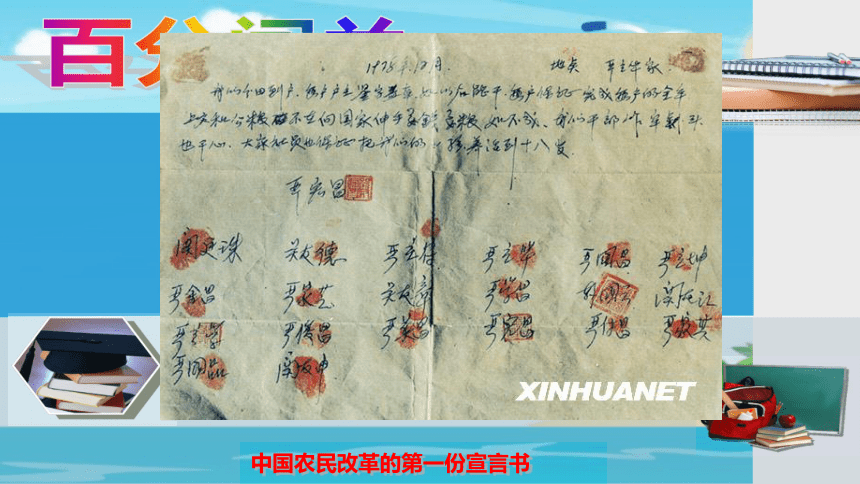 百分闯关
1978年12月. 地点 严立华家.
我们分田到户. 每户户主签字盖章. 如以后能干. 每户保证完成每户的全年
上交和公粮 不在向国家伸手要钱要粮. 如不成. 我们干部作牢刹头
也干心. 大家社员也保证把我们的小孩养活到十八岁.
严宏昌
关友德 严立华 严国昌 严立坤
严金昌 严家芝 严学昌
严俊昌 严美昌 严宏昌 严付昌 严家其
严国品 关友申
XINHUANET
中国农民改革的第一份宣言书